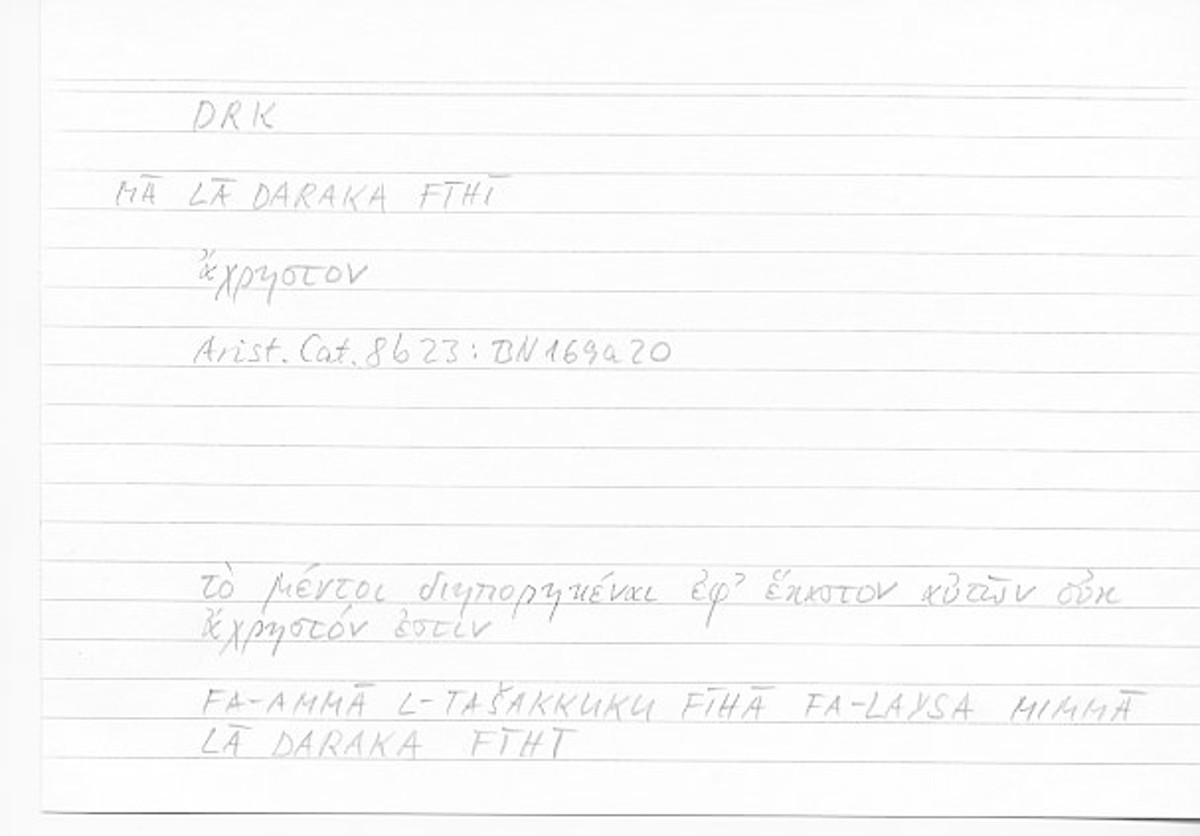 DRK
MĀ LĀ DARAKA FĪHĪ
ἄχρηστον
Arist. Cat. 8b23: BN169a20
τὸ μέντοι διηπορηκέναι ἐφ' ἕκαστον αὐτῶν οὐκ
ἄχρηστόν ἐστιν
FA-AMMĀ L-TAŠAKKUKU FĪHĀ FA-LAYSA MIMMĀ
LĀ DARAKA FĪHĪ